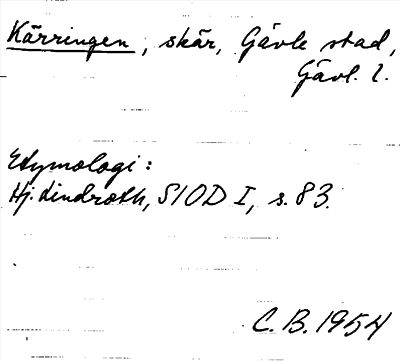 Kärringen, skär, Gävle stad,
Gävl. l.
Etymologi:
Hj. Lindroth, SIOD I, s. 83.
C. B. 1954